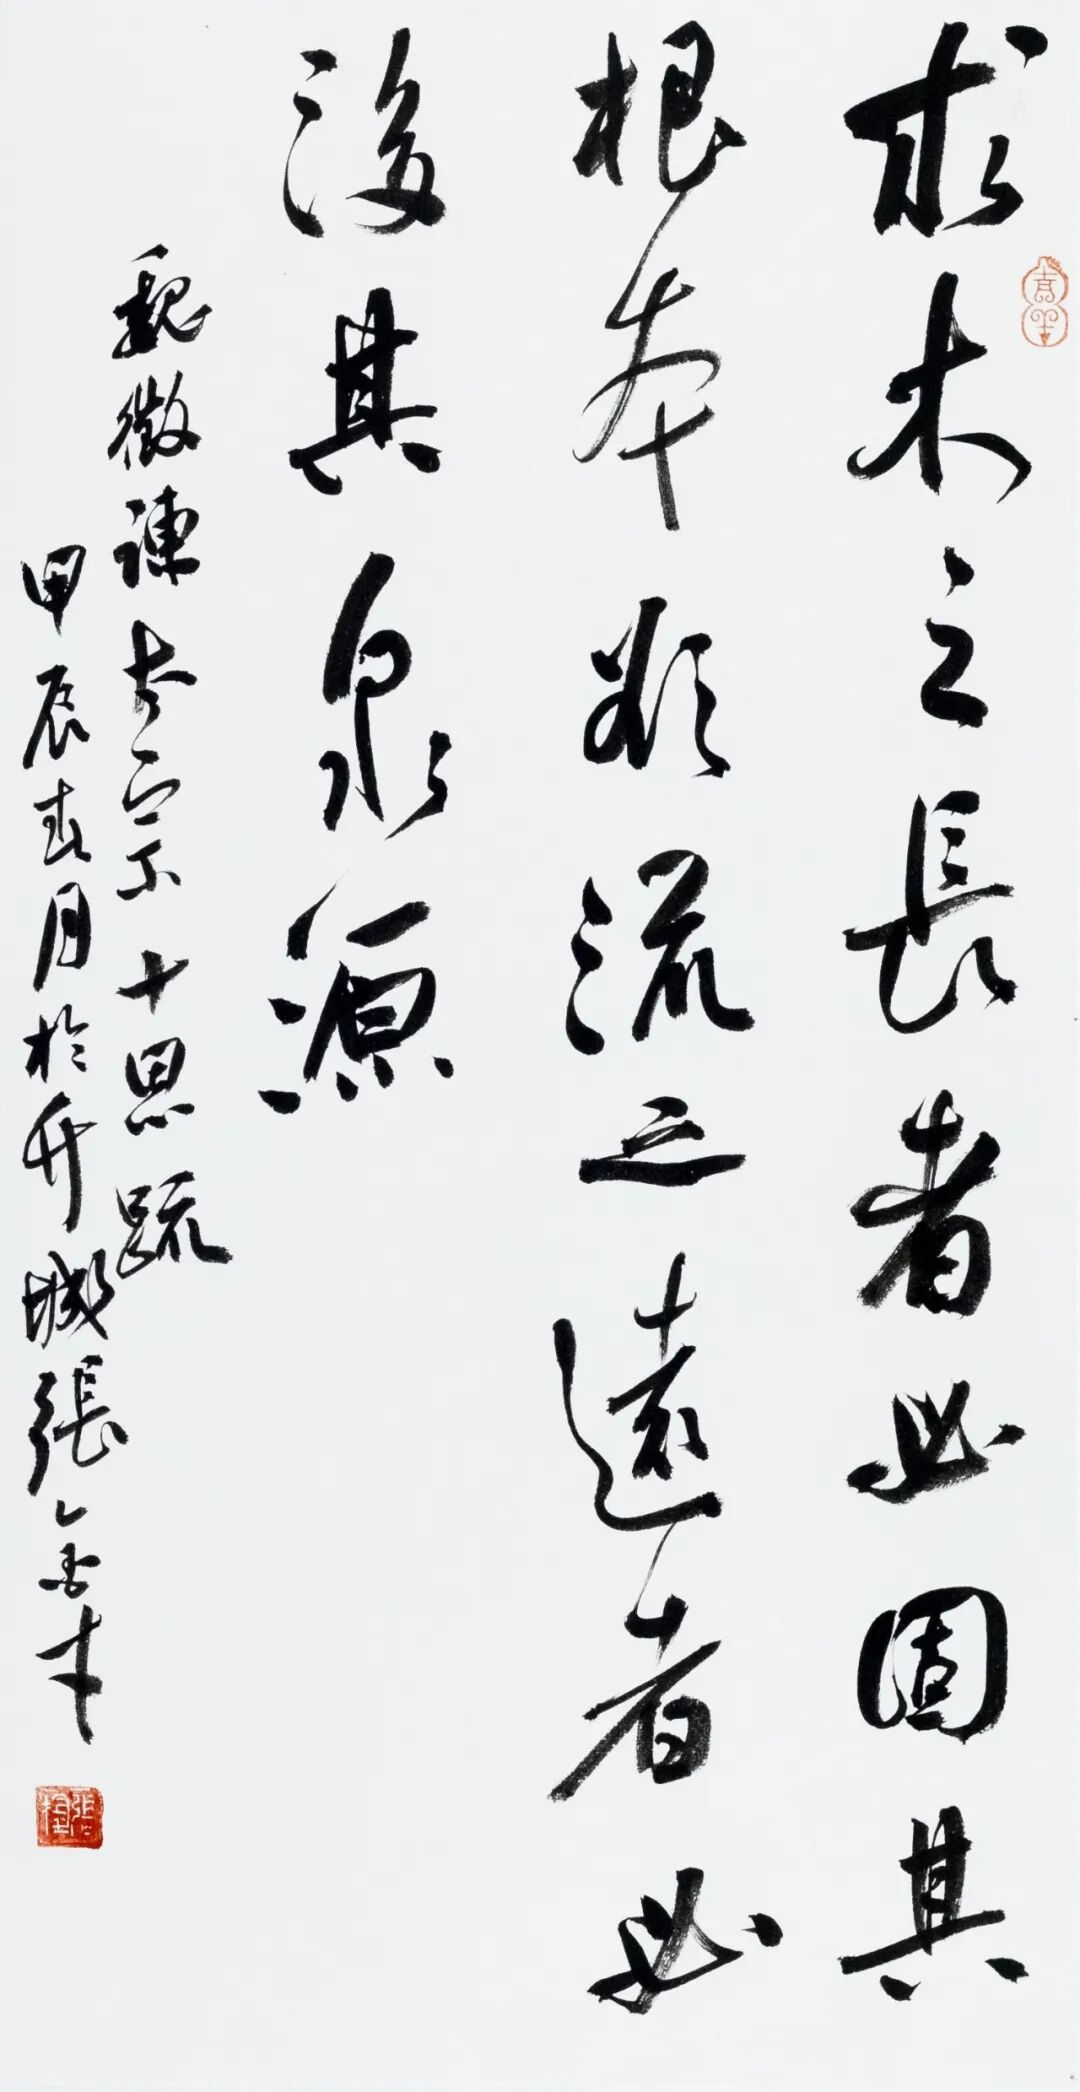 求木之長者必固其
根本欲流之遠者必
浚其泉源
魏徵諫太宗十思疏
甲辰春月於升城張金本